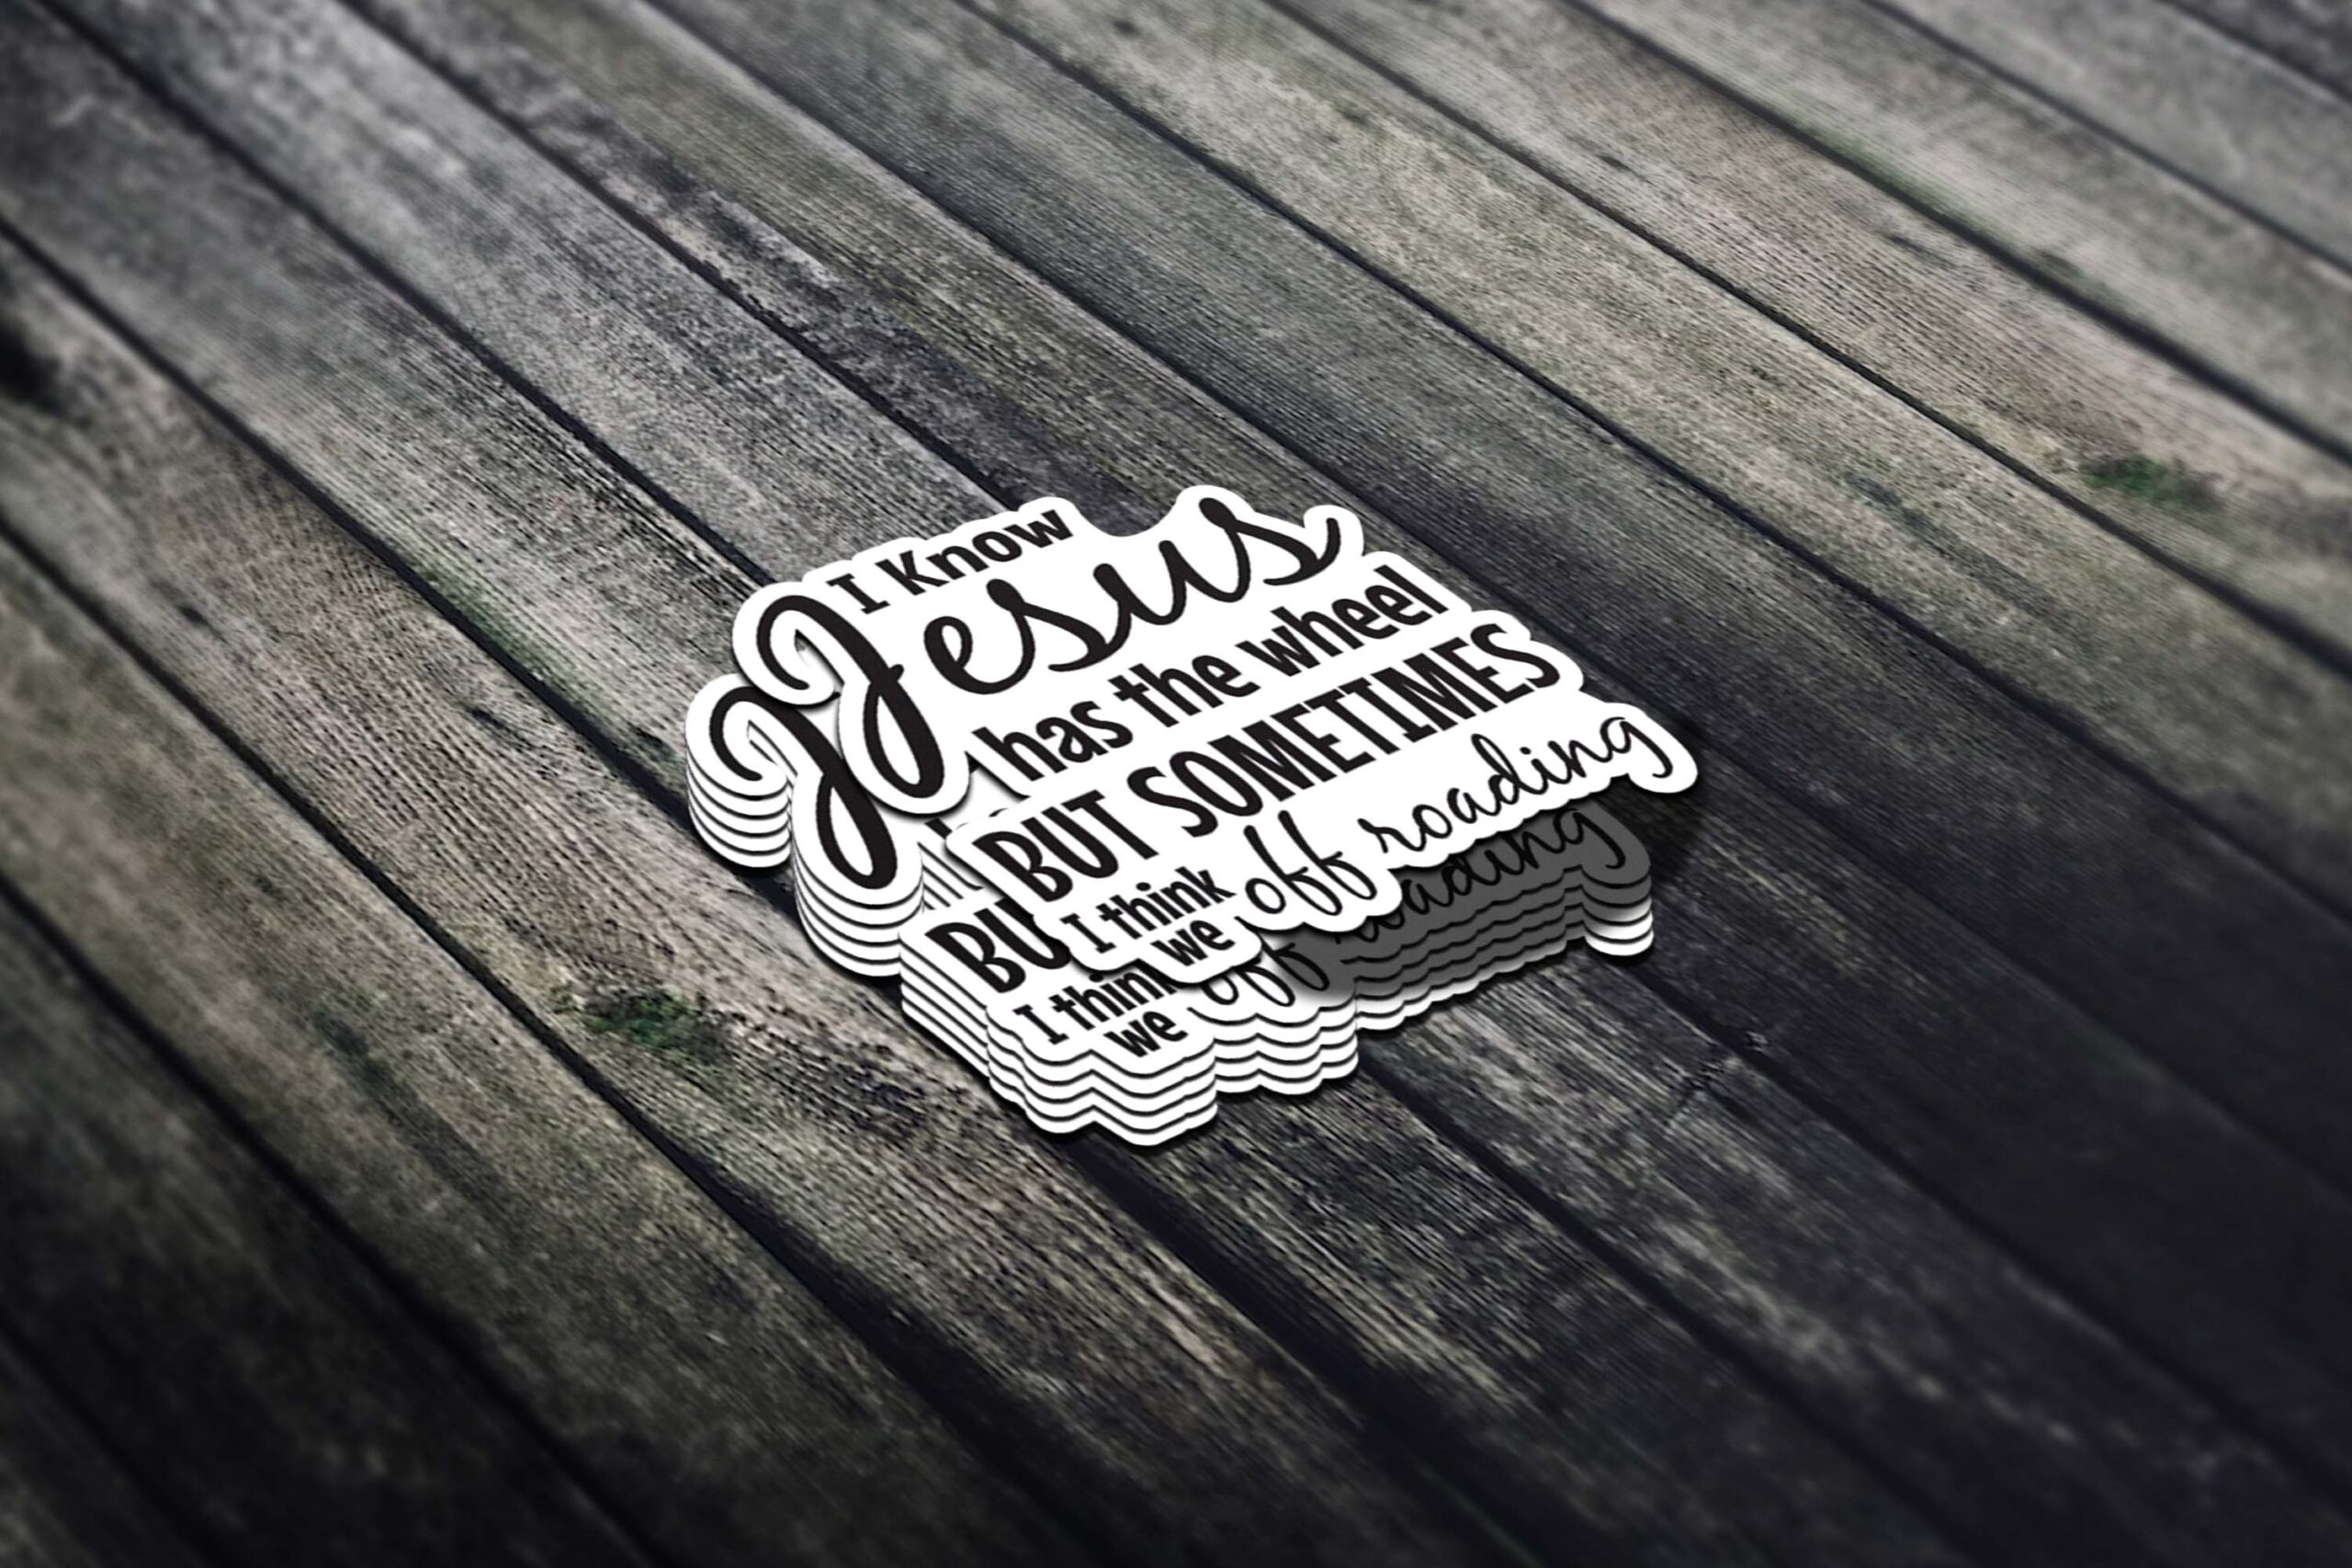 I Know
Jesus
has the wheel
BUT SOMETIMES
I think
we off roading
BU
I think
we off roading